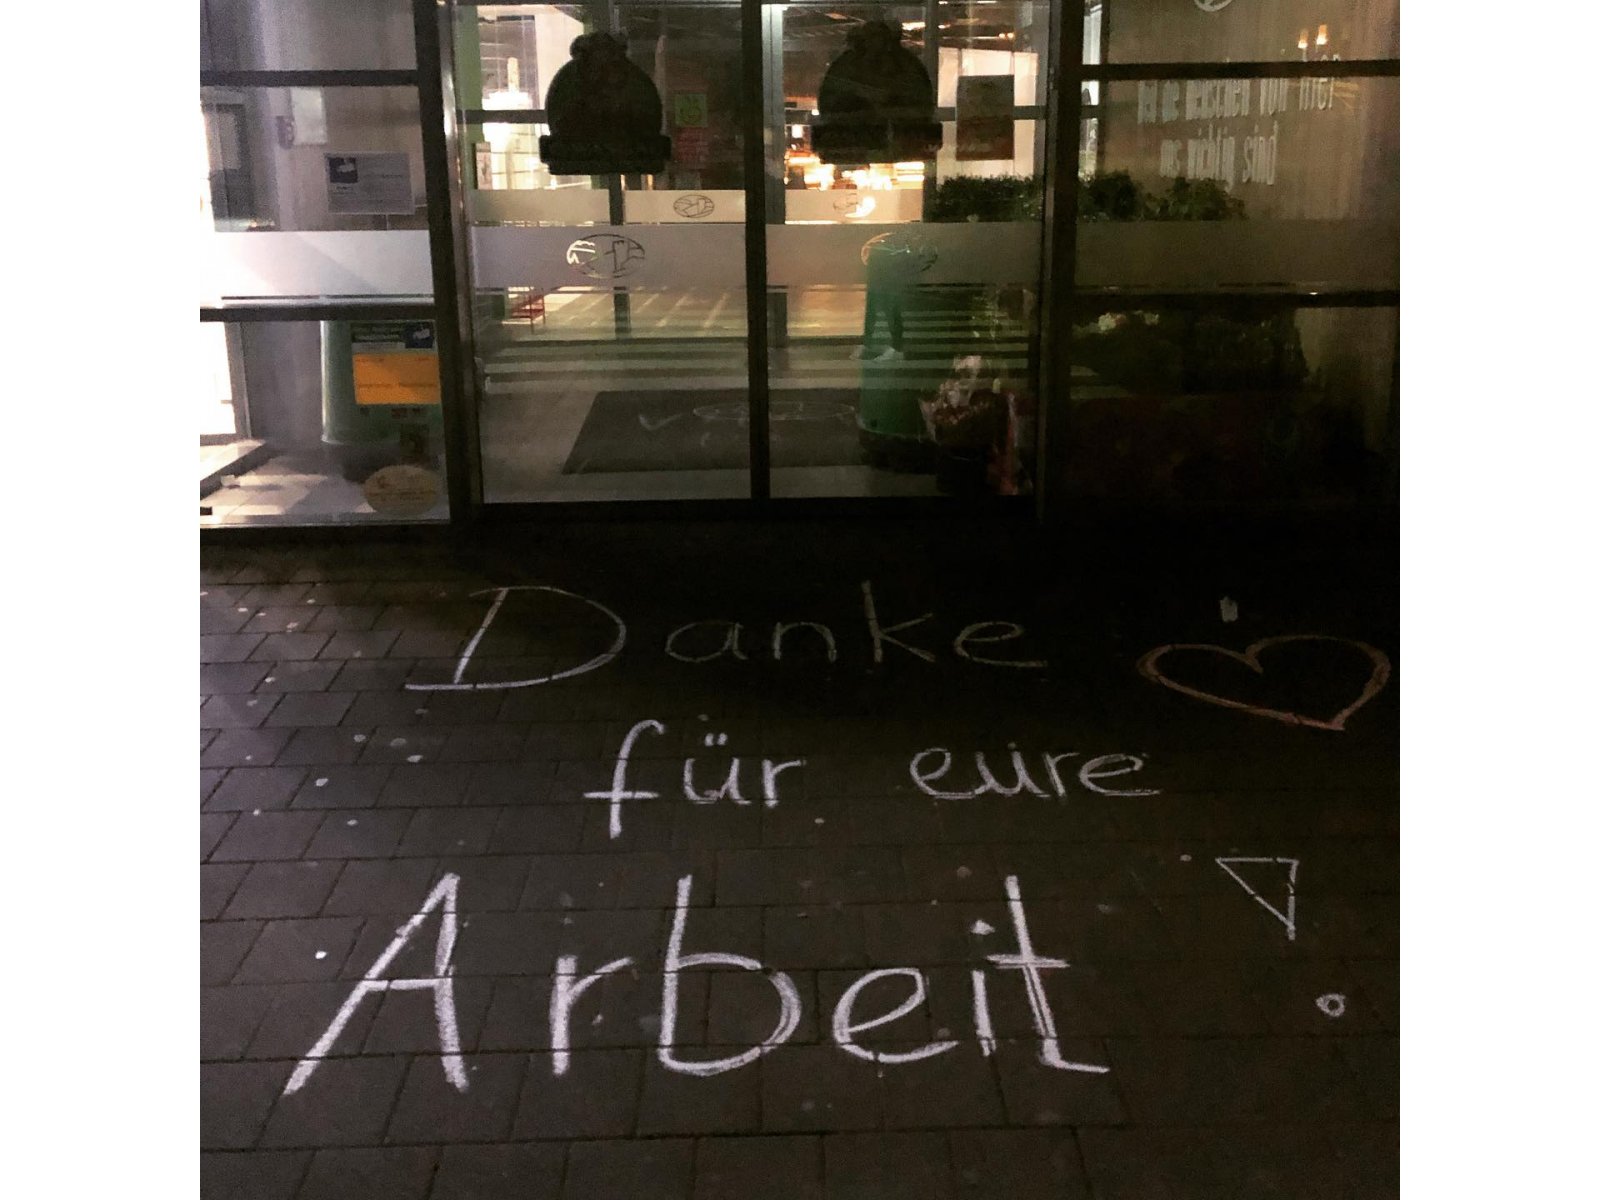 die Menschen von hier
uns wichtig sind
Danke
für eure
Arbeit!